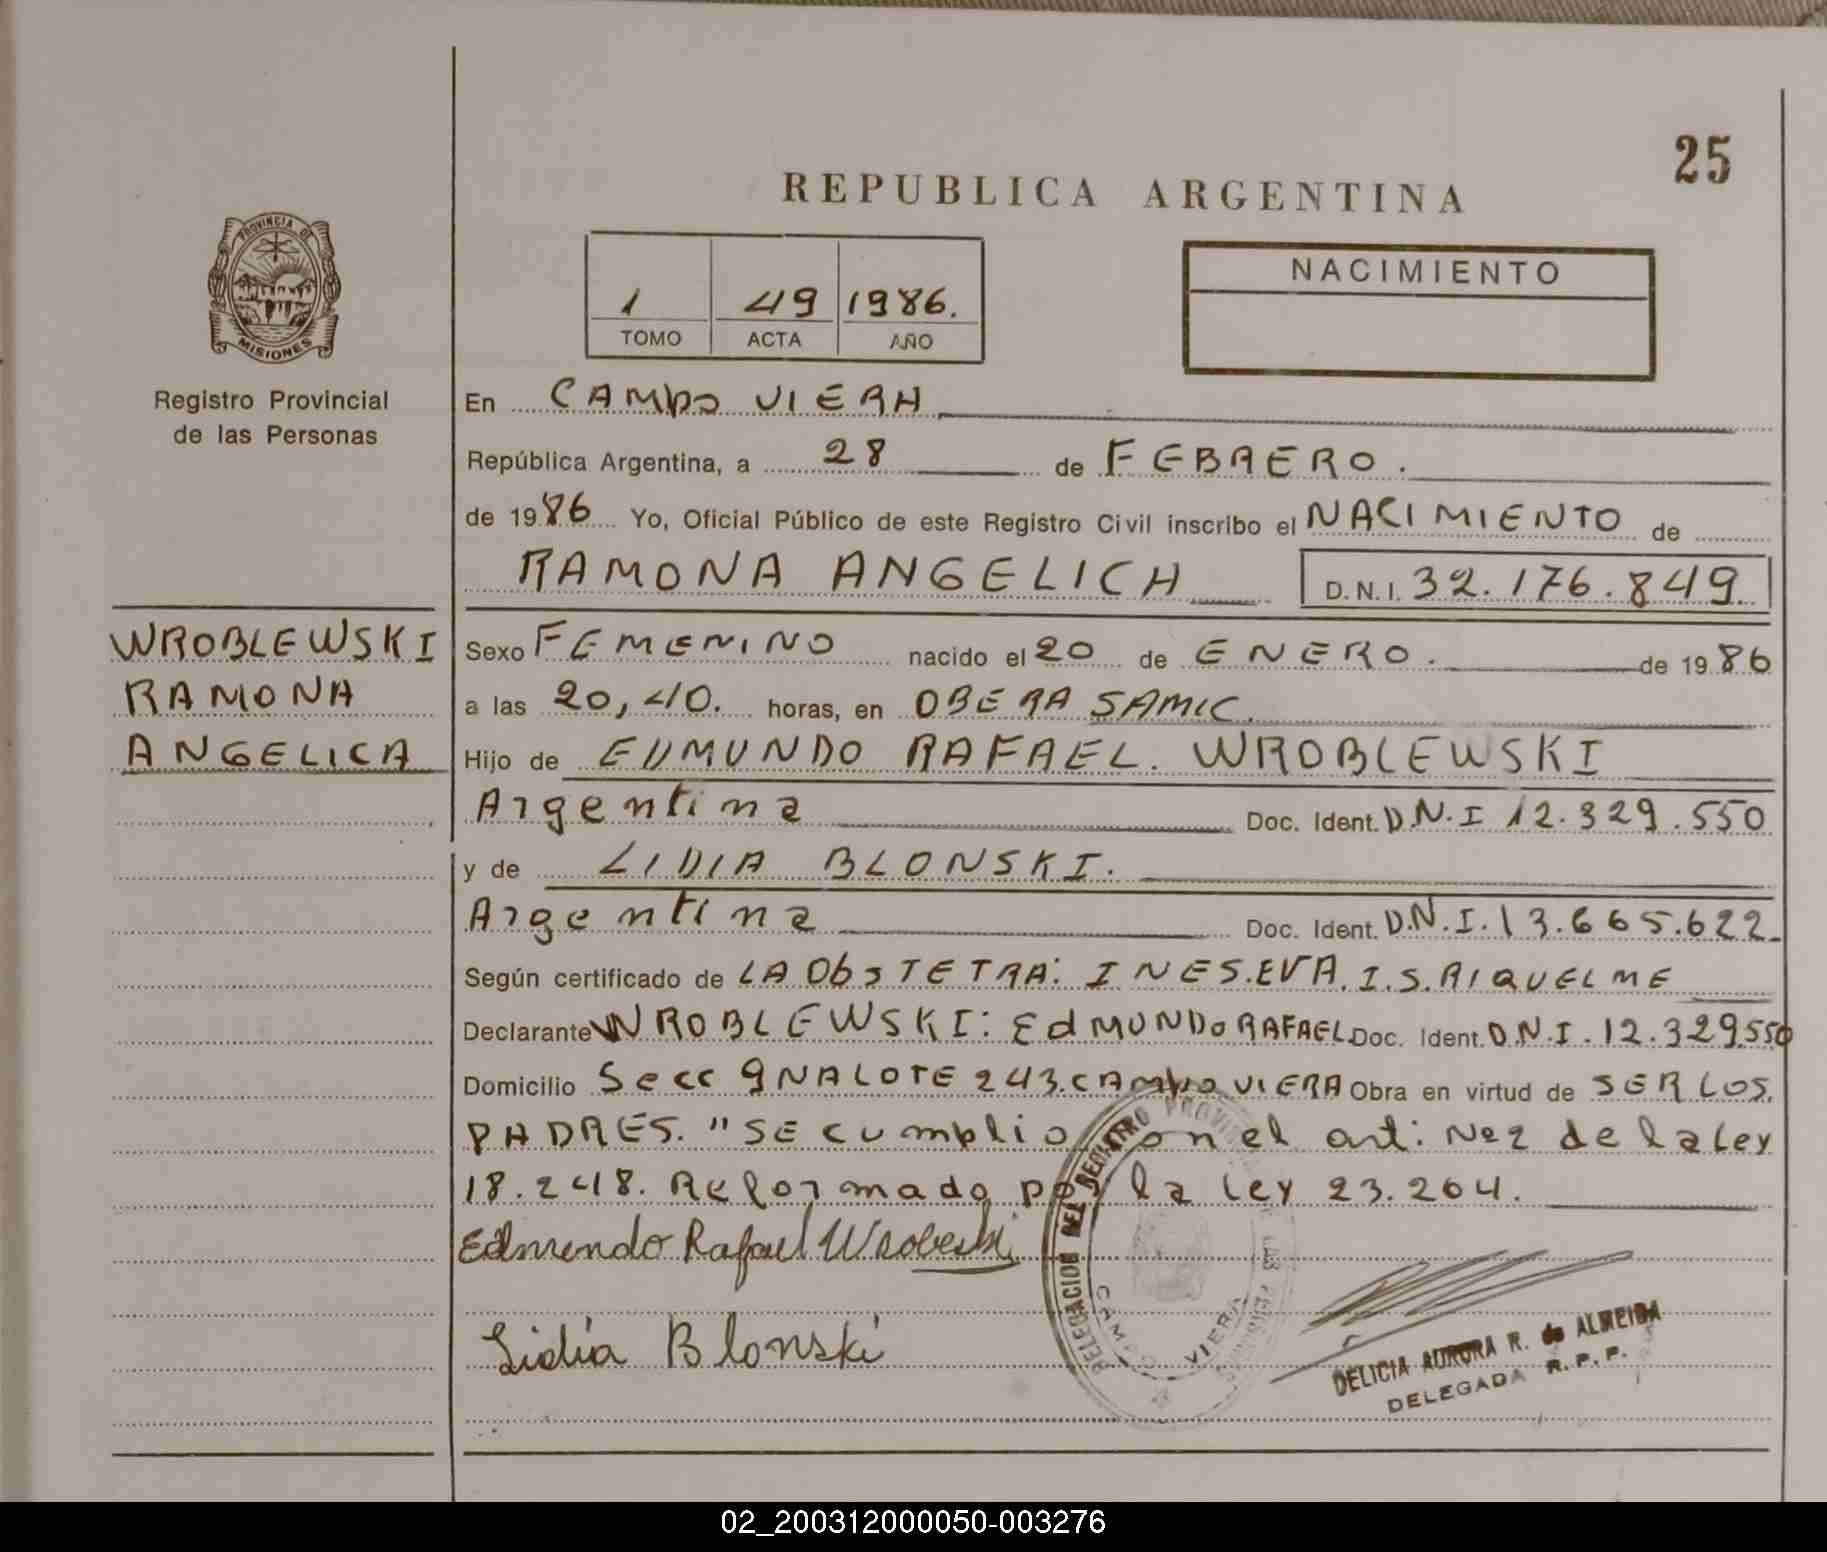 25
REPUBLICA ARGENTINA
PROVINCIA DE
MISIONES
Registro Provincial
de las Personas
1 49 1986.
TOMO ACTA AÑO
NACIMIENTO
En CAMPO VIERA
República Argentina, a 28 de FEBRERO.
de 1986 Yo, Oficial Público de este Registro Civil inscribo el NACIMIENTO de
RAMONA ANGELICA D.N.I. 32.176.849.
WROBLEWSKI
RAMONA
ANGELICA
Sexo FEMENINO nacido el 20 de ENERO. de 1986
a las 20,40. horas, en OBERA SAMIC.
Hijo de EDMUNDO RAFAEL. WROBLEWSKI
Argentina Doc. Ident. D.N.I 12.329.550
y de LIDIA BLONSKI.
Argentina Doc. Ident. D.N.I. 13.665.622
Según certificado de LA ObsTETRA: INES.EVA.I.S.RIQUELME
Declarante WROBLEWSKI: EdMUNDO RAFAEL Doc. Ident. D.N.I. 12.329.550
Domicilio Secc 9NA LOTE 243. CAMPO VIERA Obra en virtud de SER LOS
PADRES. "SE cumplio con el art: Nº2 de la Ley
18.248. Reformado por la Ley 23.264.
Edmundo Rafael Wrobleski
Lidia Blonski
DELEGACION DEL REGISTRO PROVINCIAL DE LAS PERSONAS
CAMPO VIERA
DELICIA AURORA R. de ALMEIDA
DELEGADA R.P.P.
02_200312000050-003276